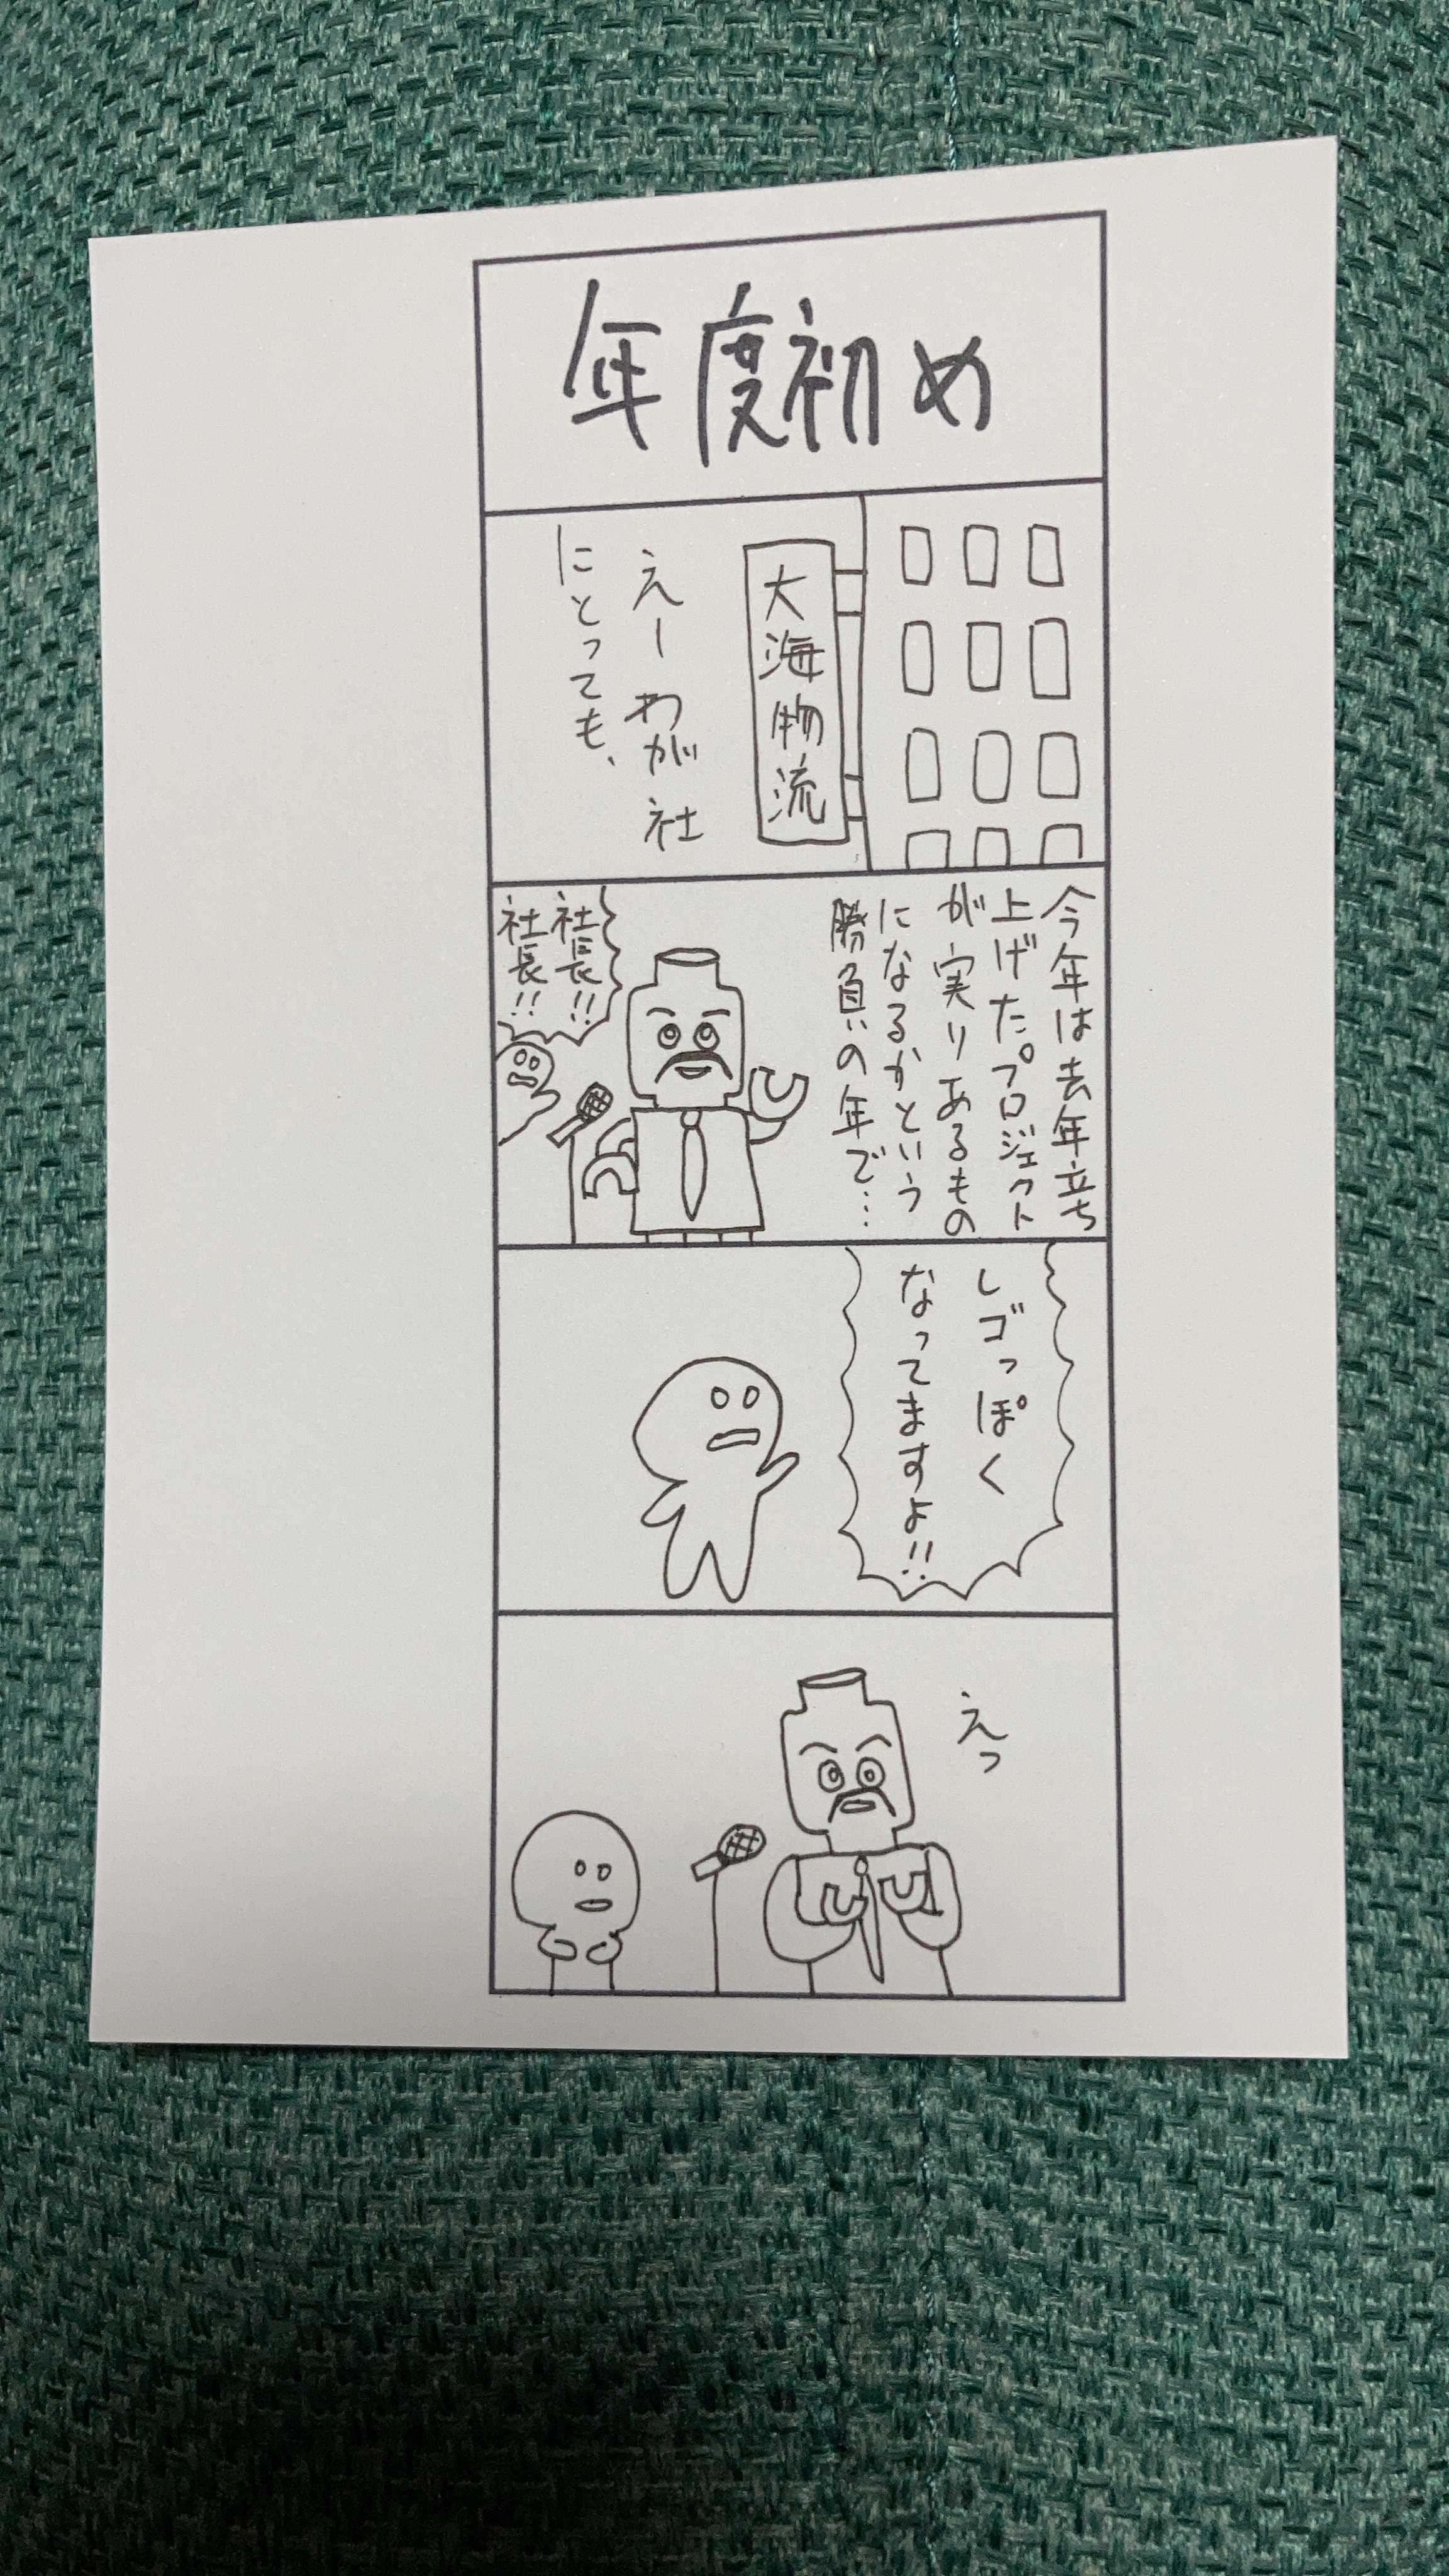 年度初め
大海物流
えーわが社
にとっても、
今年は去年立ち
上げたプロジェクト
が実りあるもの
になるかという
勝負の年で…
社長!!
社長!!
レゴっぽく
なってますよ!!
えっ